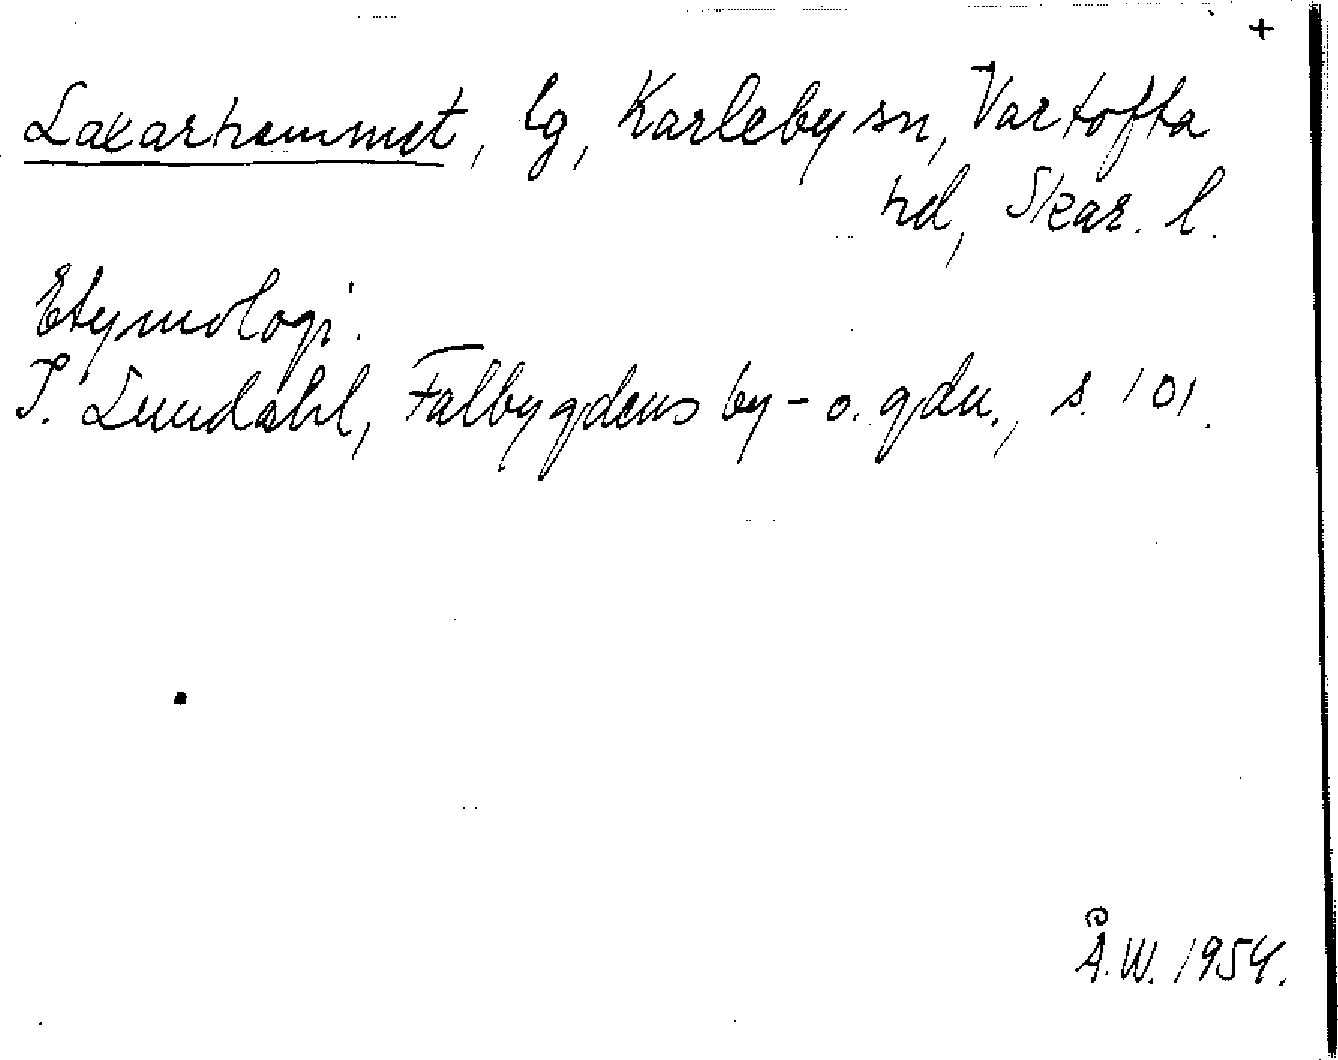 +
Laxarhemmet, lg, Karleby sn, Vartofta
hd, Skar. l.
Etymologi.
I. Lundahl, Falbygdens by- o. gdn., s. 101.
Å.W. 1954.